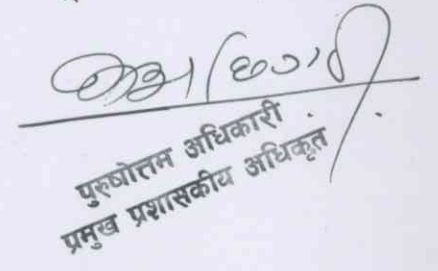 पुरुषोत्तम अधिकारी
प्रमुख प्रशासकीय अधिकृत